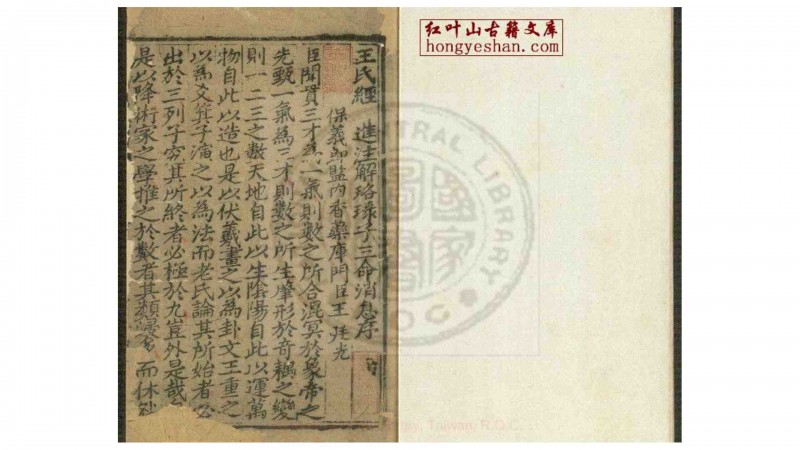 王氏經 進注解珞琭子三命消息序
保義郎監內香藥庫門臣王 廷光
臣聞貫三才為一氣則數之所合混冥於象帝之
先甄一氣為三才則數之所生肇形於奇耦之變
則一二三之數天地自此以生陰陽自此以運萬
物自此以造也是以伏羲畫之以為卦文王重之
以為爻箕子演之以為法而老氏論其所始者必
出於三列子窮其所終者必極於九豈外是哉
是以降術家之學推之於數者其類寖 而休
红叶山古籍文库
hongyeshan.com
CENTRAL LIBRARY
國家圖書館
R.O.C.
Library, Taiwan, R.O.C.